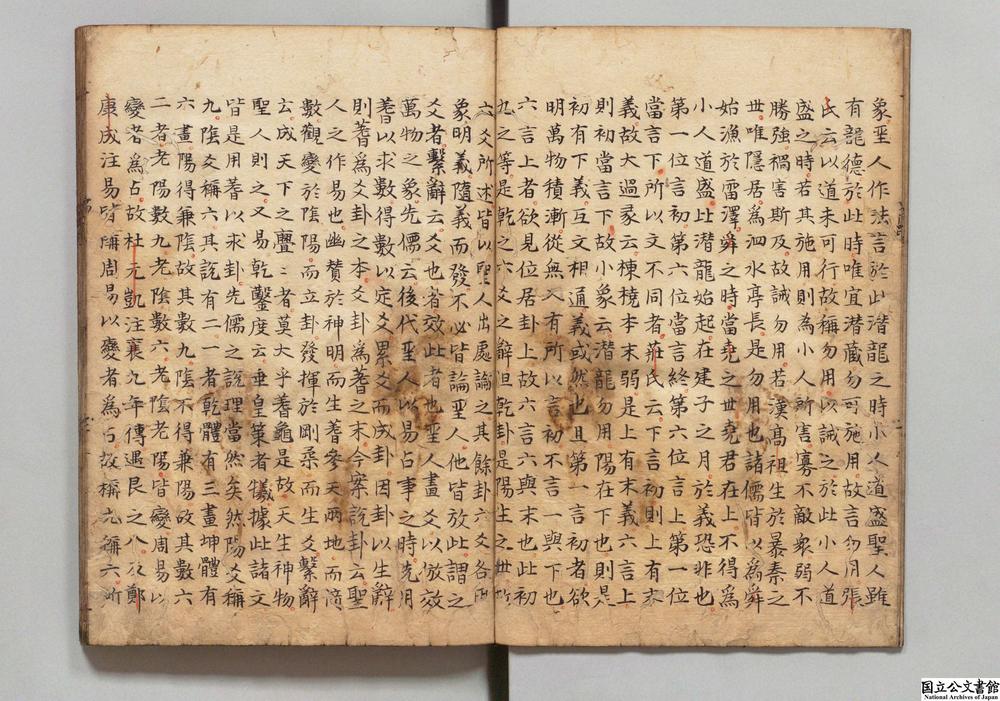 象聖人作法言於此潜龍之時小人道盛聖人雖
有龍德於此時唯宜潜藏勿可施用故言勿用張
氏云以道未可行故稱勿用以誡之於此小人道
盛之時若其施用則為小人所害寡不敵衆弱不
勝強禍害斯及故誡勿用若漢高祖生於暴秦之
世唯隱居為泗水亭長是勿用也諸儒皆以為舜
始漁於雷澤舜之時當堯之世堯君在上不得為
小人道盛此潜龍始起在建子之月於義恐非也
第一位言初第六位當言終第六位言上第一位
當言下所以文不同者莊氏云下言初則上有末
義故大過彖云棟橈本末弱是上有末義六言上
則初當言下故小象云潜龍勿用陽在下也則是
初有下義互文相通義或然也且第一言初者欲
明萬物積漸從無入有所以言初不言一與下也
六言上者欲見位居卦上故六言六與末也此初
九之等是乾之六爻之辭但乾卦是陽生之世故
六爻所述皆以聖人出處論之其餘卦六爻各因
象明義隨義而發不必皆論聖人他皆放此謂之
爻者繫辭云爻也者效此者也聖人畫爻以倣效
萬物之象先儒云後代聖人以易占事之時先用
蓍以求數得數以定爻累爻而成卦因卦以生辭
則蓍為爻卦之本爻卦為蓍之末今案說卦云聖
人之作易也幽贊於神明而生蓍參天兩地而倚
數觀變於陰陽而立卦發揮於剛柔而生爻繫辭
云成天下之亹〻者莫大乎蓍龜是故天生神物
聖人則之又易乾鑿度云垂皇策者犧據此諸文
皆是用蓍以求卦先儒之說理當然矣然陽爻稱
九陰爻稱六其說有二一者乾體有三畫坤體有
六畫陽得兼陰故其數九陰不得兼陽故其數六
二者老陽數九老陰數六老陰老陽皆變周易以
變者為占故杜元凱注襄九年傳遇艮之八及鄭
康成注易皆稱周易以變者為占故稱九稱六所
国立公文書館
National Archives of Japan